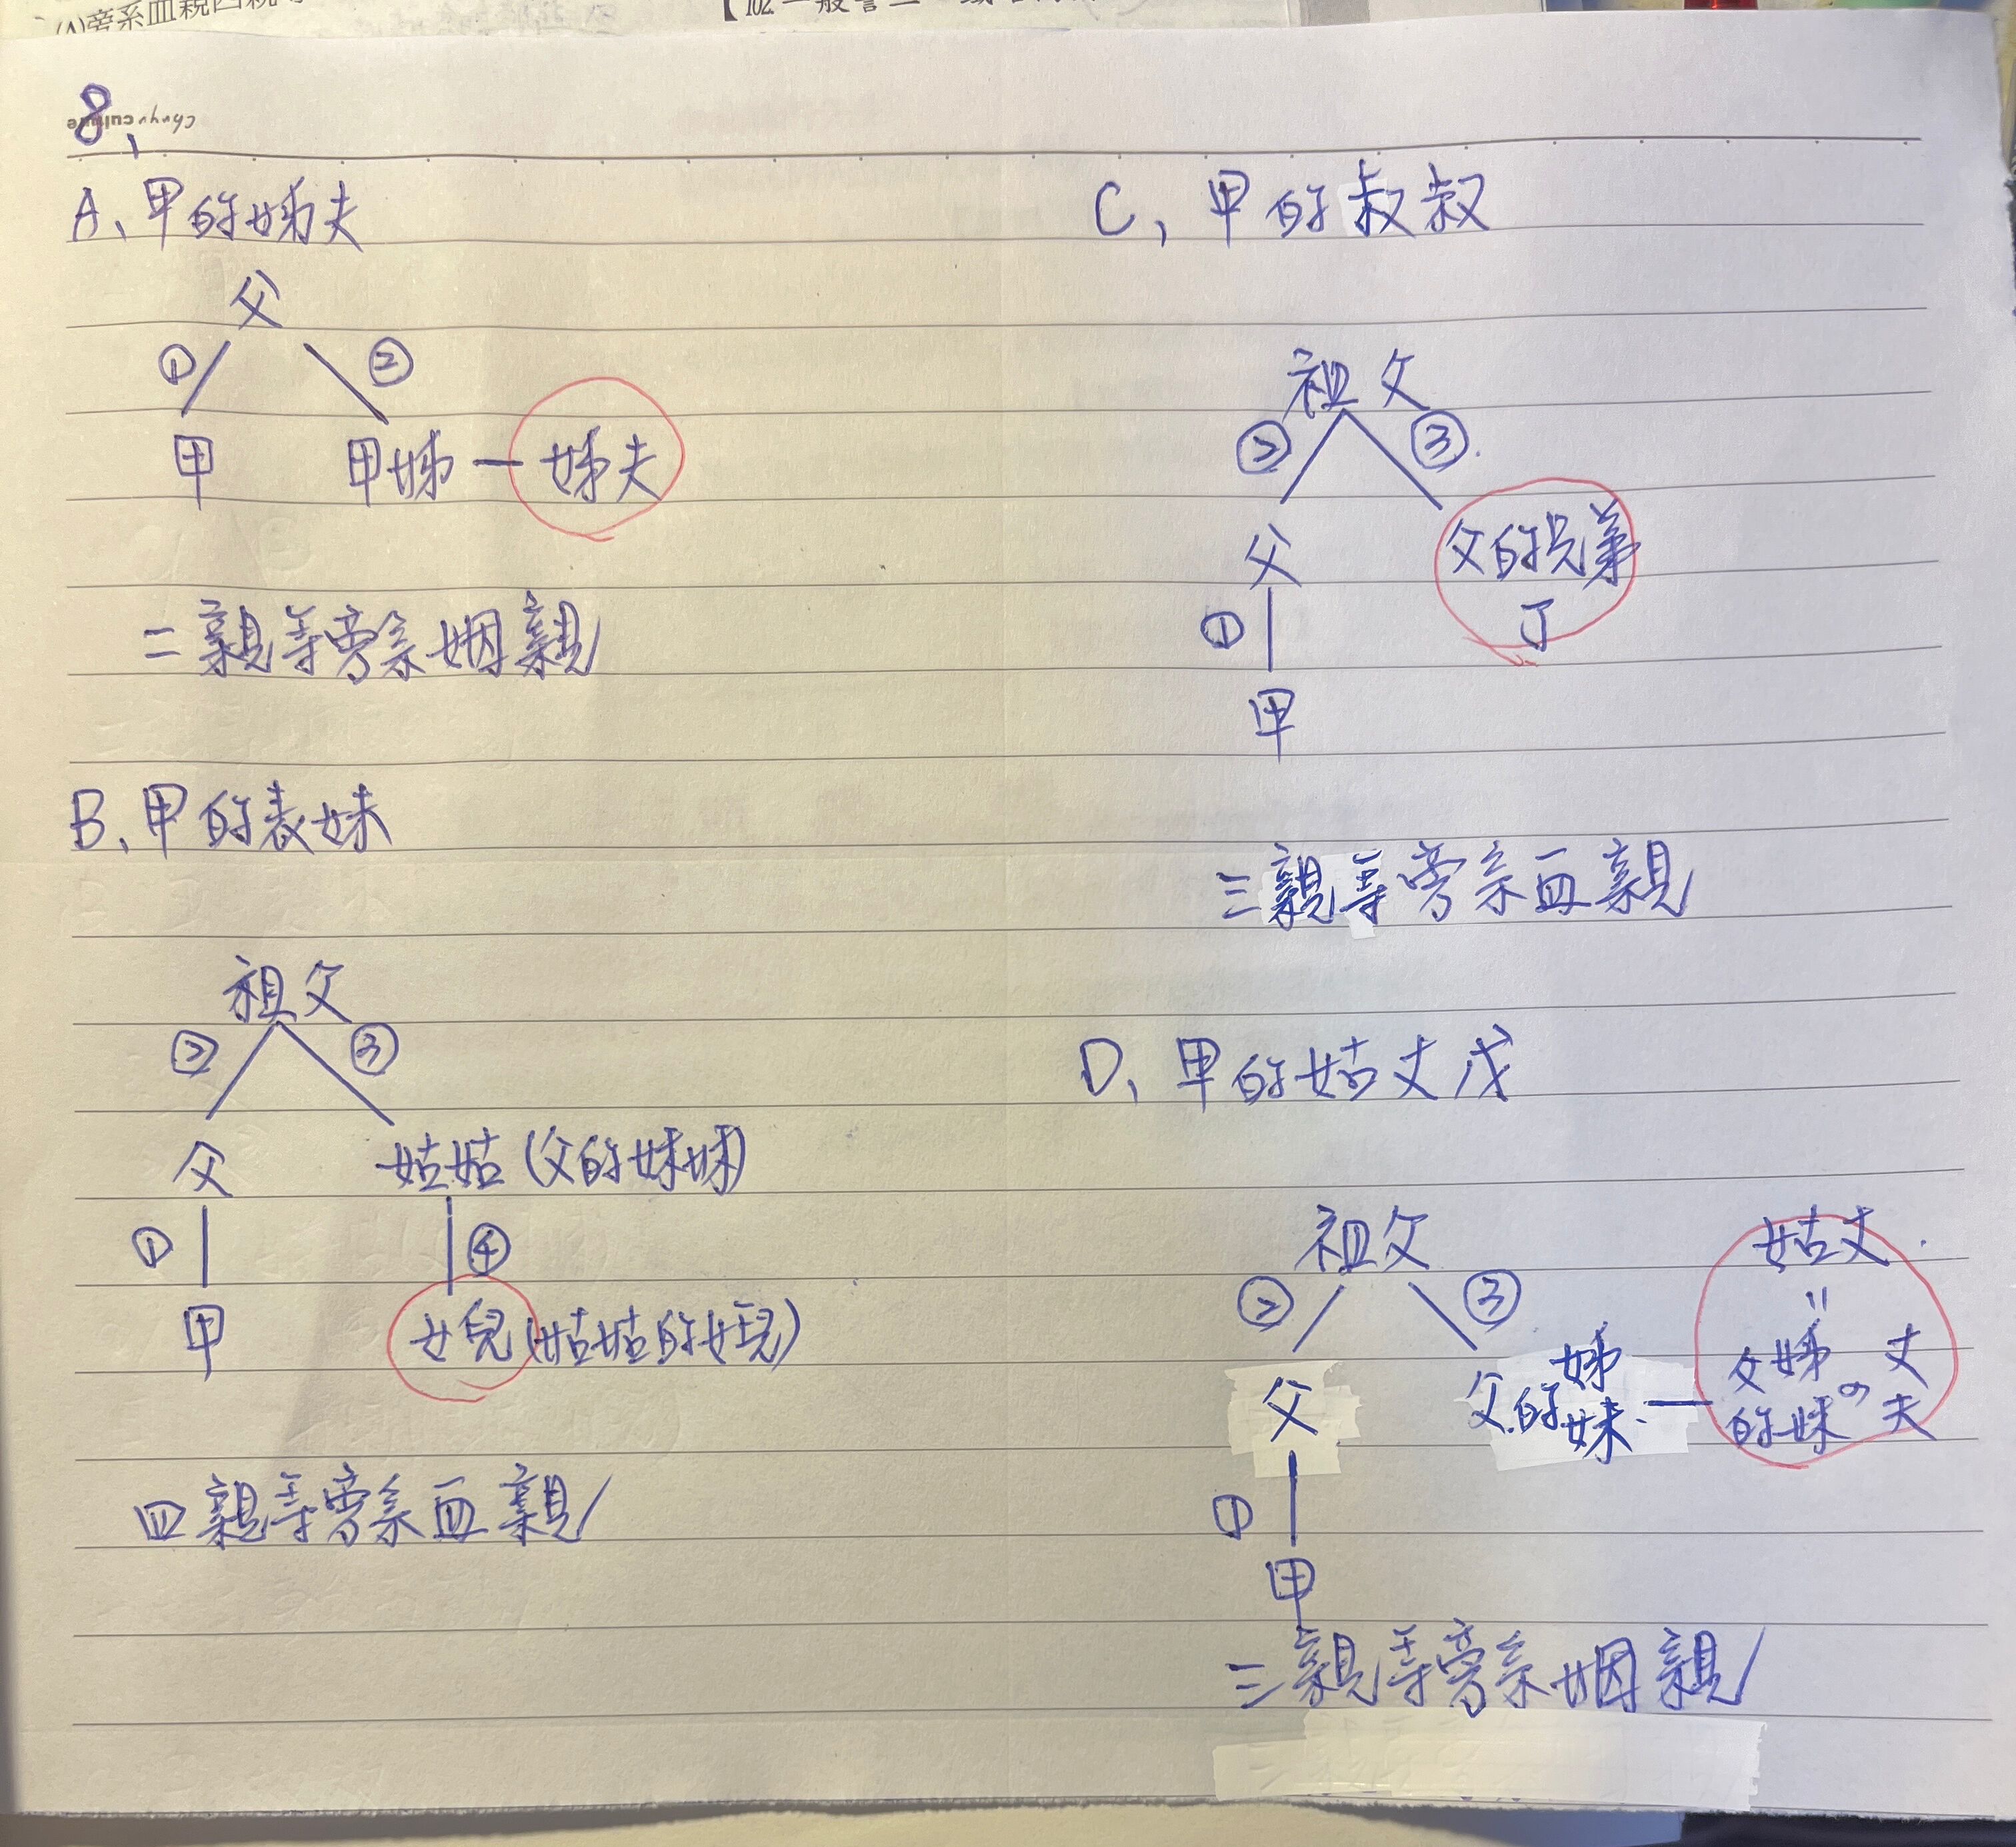 8、
A、甲的姊夫
父
① ②
甲 甲姊 — 姊夫
二親等旁系姻親
B、甲的表妹
祖父
② ③
父 姑姑(父的妹妹)
① ④
甲 女兒(姑姑的女兒)
四親等旁系血親
C、甲的叔叔
祖父
② ③
父 父的兄弟
① 丁
甲
三親等旁系血親
D、甲的姑丈戊
祖父 姑丈
② ③ 〃
父 父的姊妹 — 父的姊妹の丈夫
①
甲
三親等旁系姻親